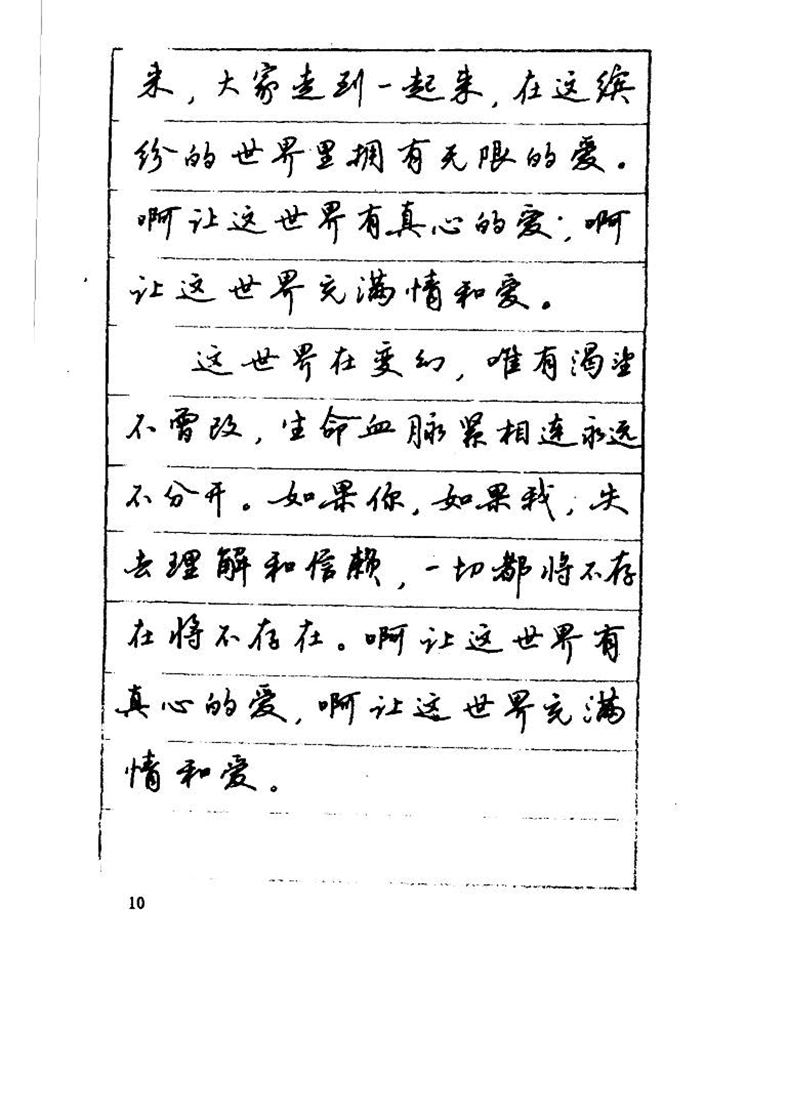 来，大家走到一起来，在这缤
纷的世界里拥有无限的爱。
啊让这世界有真心的爱；啊
让这世界充满情和爱。
这世界在变幻，唯有渴望
不曾改，生命血脉紧相连永远
不分开。如果你，如果我，失
去理解和信赖，一切都将不存
在将不存在。啊让这世界有
真心的爱，啊让这世界充满
情和爱。
10